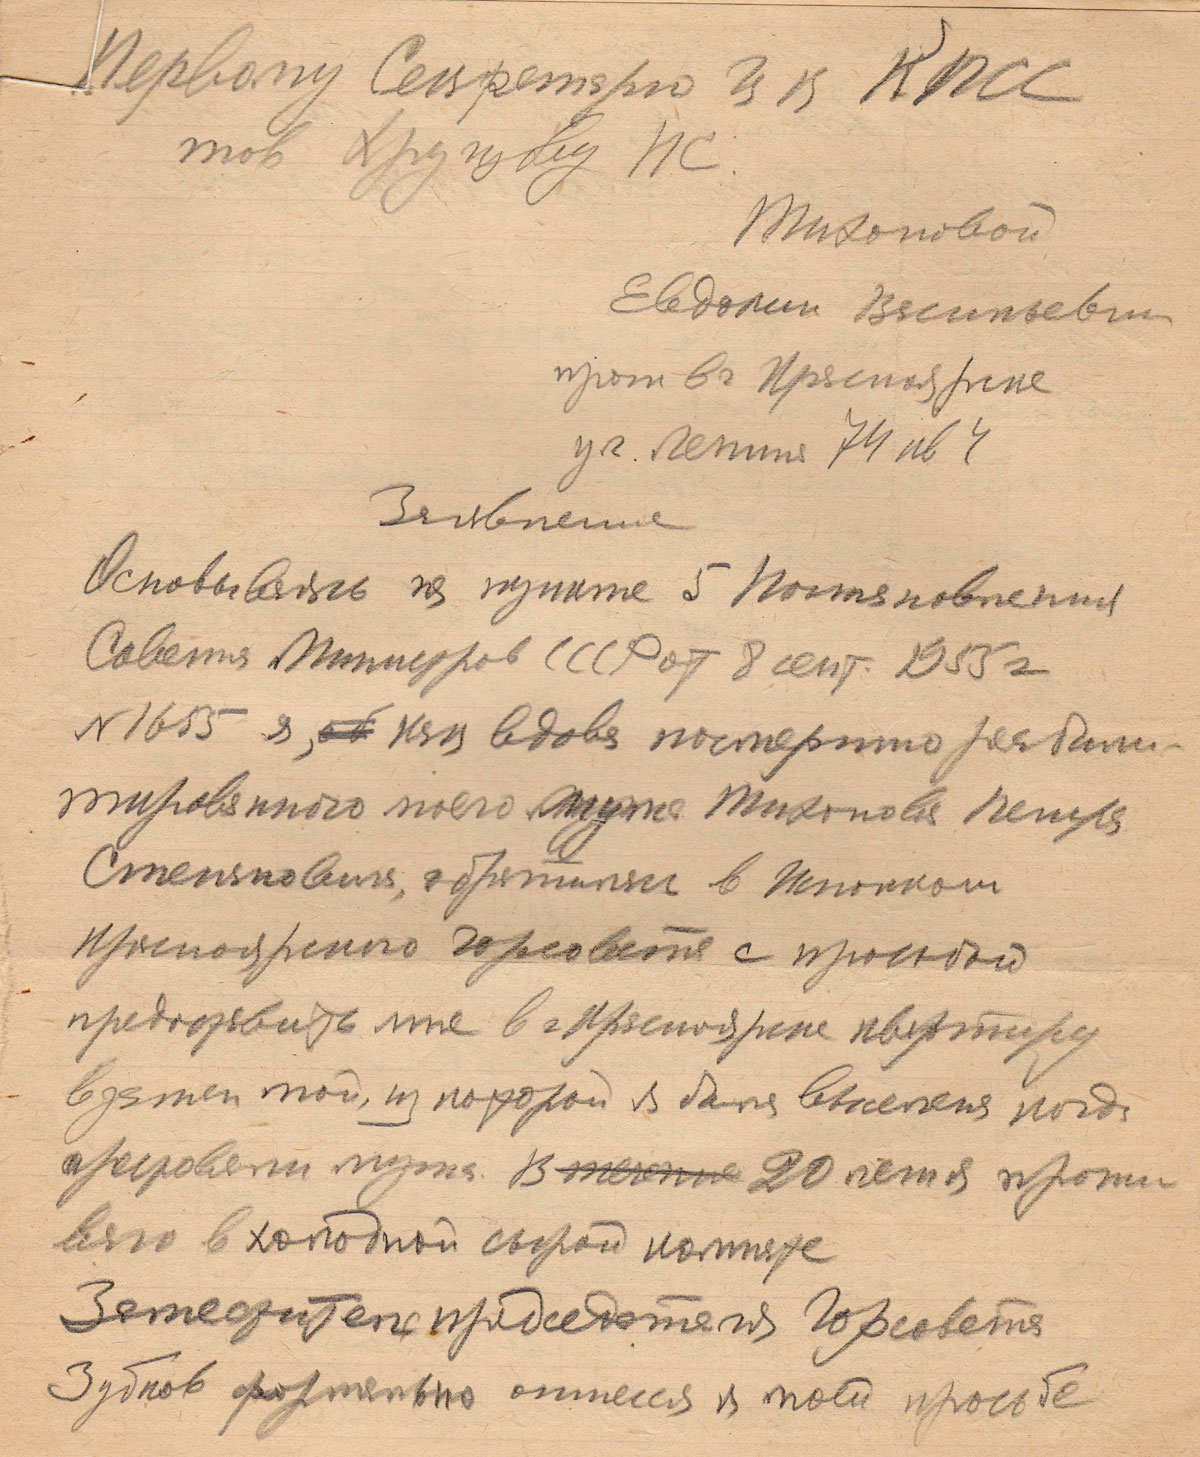 Первому Секретарю ЦК КПСС
тов Хрущеву НС.
Тихоновой
Евдокии Васильевны
прож в г Красноярске
ул. Ленина 74 кв 4
Заявление
Основываясь на пункте 5 Постановления
Совета Министров СССР от 8 сент. 1955 г
N 1655 я, как вдова посмертно реабили-
тированного моего мужа Тихонова Петра
Степановича, обратилась в Исполком
Красноярского Горсовета с просьбой
предоставить мне в г Красноярске квартиру
взамен той, из которой я была выселена когда
арестовали мужа. В течение 20 лет я прожи
ваю в холодной сырой комнате
Заместитель председателя Горсовета
Зубков формально отнесся к моей просьбе